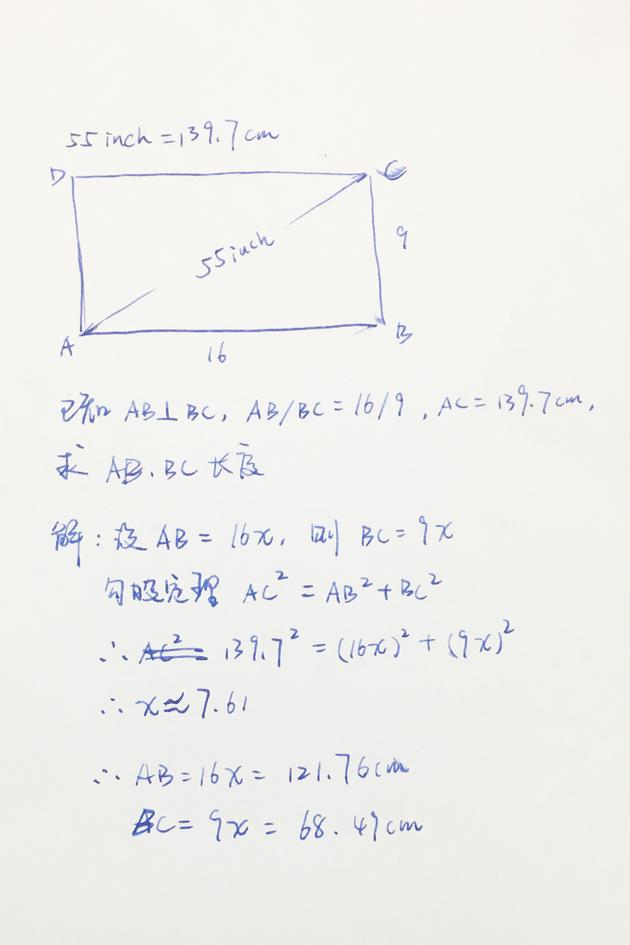 55 inch = 139.7 cm
D C
55 inch
9
A B
16
已知 AB⊥BC, AB/BC = 16/9, AC = 139.7cm,
求 AB、BC 长度
解：设 AB = 16x, 则 BC = 9x
勾股定理 AC² = AB² + BC²
∴ 139.7² = (16x)² + (9x)²
∴ x ≈ 7.61
∴ AB = 16x = 121.76cm
BC = 9x = 68.49cm